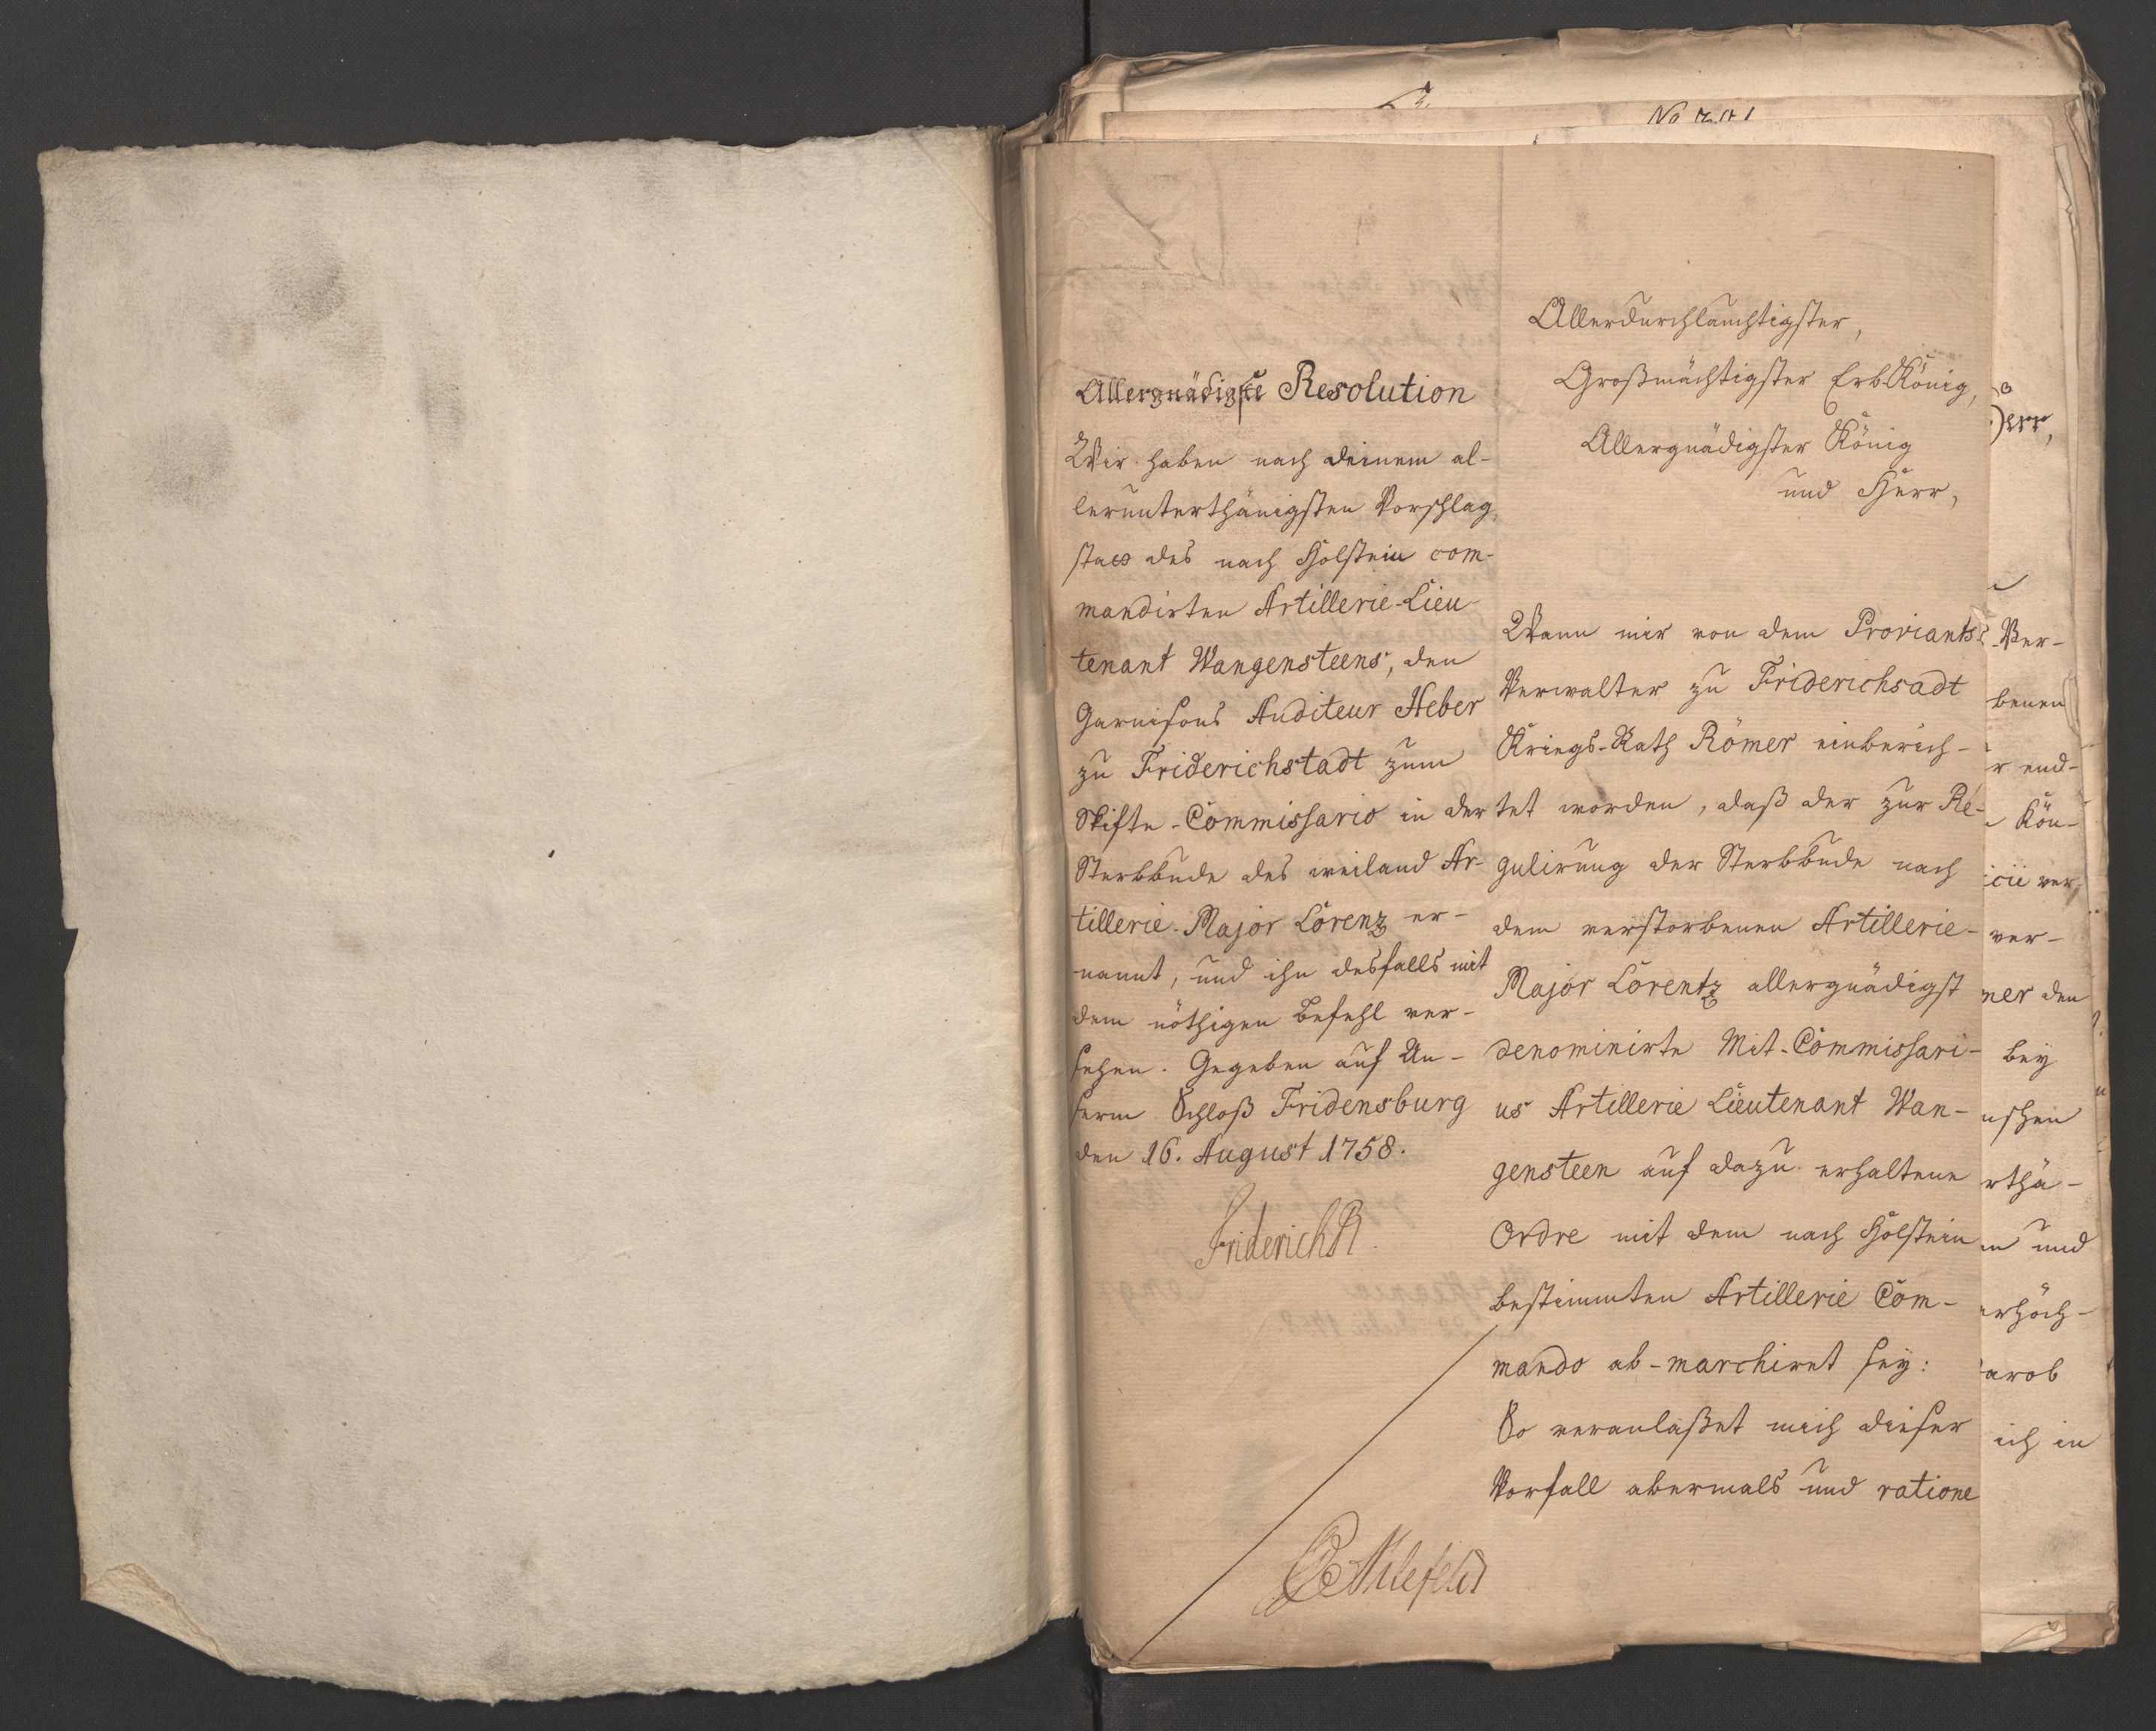 No
Allergnädigste Resolution
Wir haben nach deinem al-
lerunterthänigsten Vorschlag,
statt des nach Holstein com-
mandirten Artillerie-Lieu-
tenant Wangensteens, den
Garnisons Auditeur Heber
zu Friderichstadt zum
Skifte-Commissario in der
Sterbbude des weiland Ar-
tillerie-Major Lorenz er-
nannt, und ihn desfalls mit
dem nöthigen Befehl ver-
sehen. Gegeben auf Un-
serm Schloß Fridensburg
den 16. August 1758.
Friderich R.
Allerdurchlauchtigster,
Großmächtigster ErbKönig,
Allergnädigster König
und Herr,
Wann mir von dem Proviant-
Verwalter zu Friderichsadt
Kriegs-Rath Römer einberich-
tet worden, daß der zur Re-
gulirung der Sterbbude nach
dem verstorbenen Artillerie-
Major Lorentz allergnädigst
denominirte Mit-Commissari-
us Artillerie Lieutenant Wan-
gensteen auf dazu erhaltene
Ordre mit dem nach Holstein
bestimmten Artillerie Com-
mando ab-marchiret sey:
So veranlaßet mich dieser
Vorfall abermals und ratione
Ahlefeldt
Ver-
benen
end-
Kön-
ver-
den
bey
und
ich in